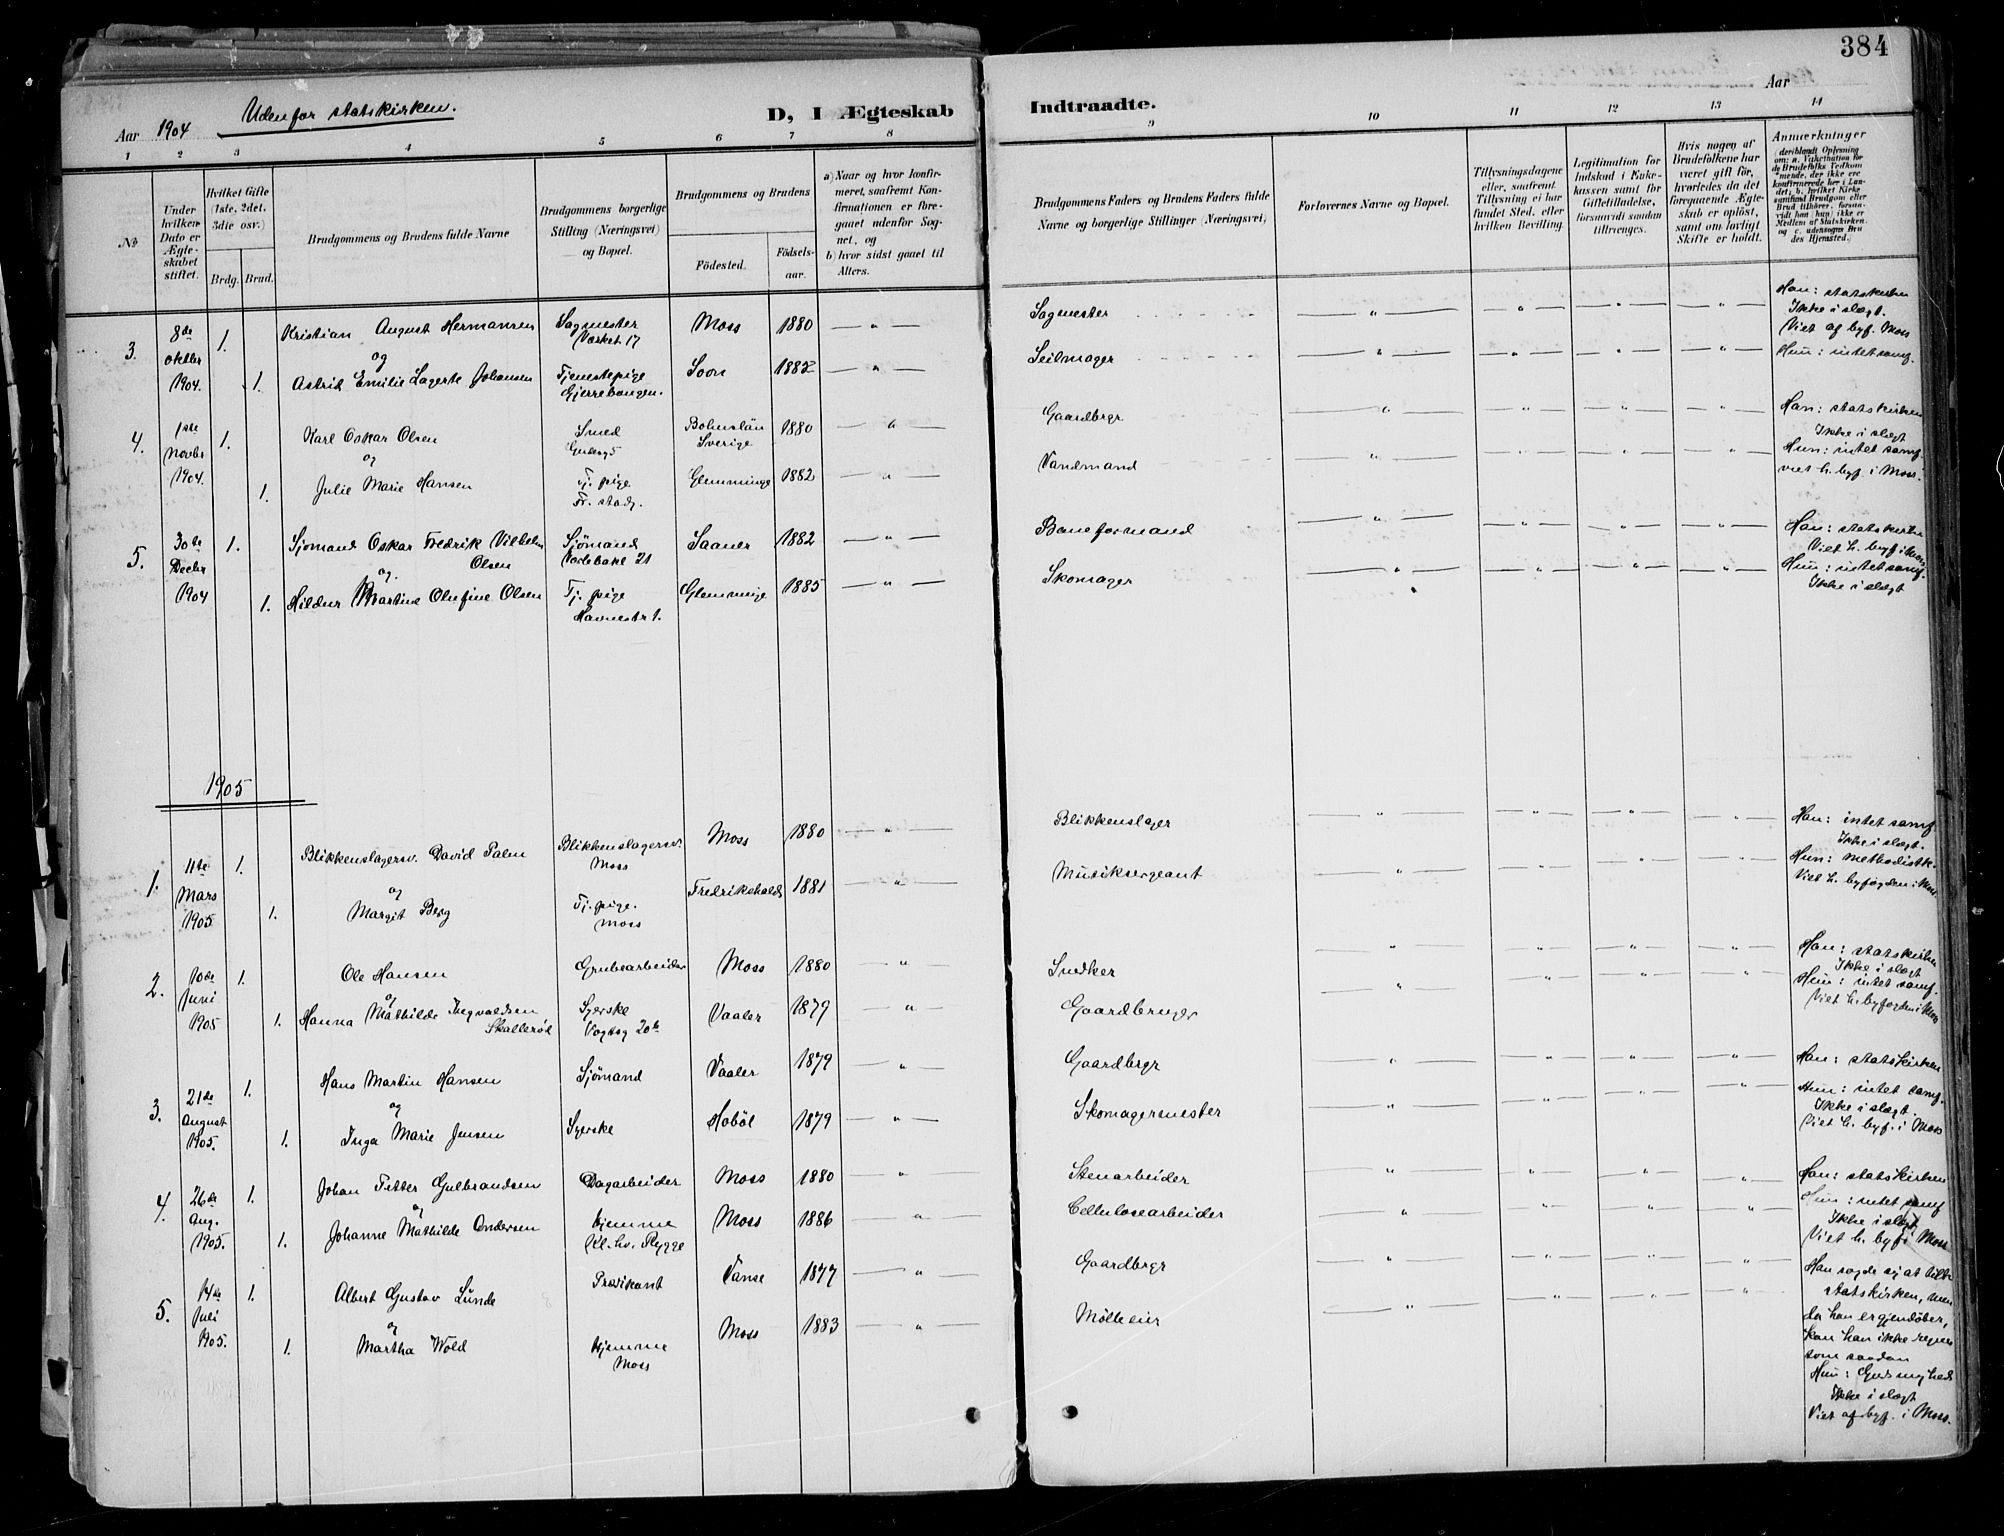 384
Aar 1904 Udenfor statskirken.
D, I Ægteskab
Indtraadte.
Aar
1 2 3 4 5 6 7 8
9 10 11 12 13 14
No
Under hvilken Dato er Ægteskabet stiftet.
Hvilket Gifte (1ste, 2det, 3die osv.)
Brdg. Brud.
Brudgommens og Brudens fulde Navne
Brudgommens borgerlige Stilling (Næringsvei) og Bopæl.
Brudgommens og Brudens
Fødested.
Fødselsaar.
a) Naar og hvor konfirmeret, saafremt Konfirmationen er foregaaet udenfor Sognet, og
b) hvor sidst gaaet til Alters.
Brudgommens Faders og Brudens Faders fulde Navne og borgerlige Stillinger (Næringsvei)
Forlovernes Navne og Bopæl.
Tillysningsdagene eller, saafremt Tillysning ei har fundet Sted, efter hvilken Bevilling.
Legitimation for Indskud i Enkekassen samt for Giftetilladelse, forsaavidt saadan tiltrænges.
Hvis nogen af Brudefolkene har været gift før, hvorledes da det foregaaende Ægteskab er opløst, samt om lovligt Skifte er holdt.
Anmærkninger
(deriblandt Oplysning om: a. Vakcination for de Brudefolks Vedkommende, der ikke ere konfirmerede her i Landet; b. hvilket Kirkesamfund Brudgom eller Brud tilhører, forsaavidt han (hun) ikke er Medlem af Statskirken og c. udensogns Brudes Hjemsted.)
3. 8de oktbr 1904. 1. Kristian August Hermansen Sagmester Værket 17 Moss 1880 — " — Sagmester
Han: statskirken
Ikke i slægt.
Viet af byf. Moss
og
1. Astrid Emilie Lagerte Johansen Tjenestepige Gjerrebongen. Soon 1882 — " — Seilmager
Hun: intet samf.
4. 1ste Novbr 1904. 1. Karl Oskar Olsen Smed Bohuslän Sverige 1880 — " — Gaardbrgr
Han: statskirken
Ikke i slægt
og
1. Julie Marie Hansen Tj. pige Fr. stad, Glemminge 1882 — " — Vandmand
Hun: intet samf.
viet h. byf. i Moss.
5. 30te Decbr 1904 1. Sjømand Oskar Fredrik Vilhelm Olsen Sjømand Vardebake 21 Saaner 1882 — " — Baneformand
Han: statskirke
Viet h. byf i Moss
og.
1. Hildur Martine Olufine Olsen Tj. pige Havnestr 1. Glemminge 1885 — " — Skomager
Hun: intet samf.
Ikke i slægt
1905
1. 11te Mars 1905 1. Blikkenslagersv. David Palm Blikkenslagersv. Moss Moss 1880 — " — Blikkenslager
Han: intet samf.
Ikke i slægt.
og
1. Margit Berg Tj. pige. Moss Fredrikshald 1881 — " — Musiksergeant
Hun: methodistk.
Viet h. byfogden i Moss.
2. 10de Juni 1905 1. Ole Hansen Grubearbeider Moss 1880 " Snedker
Han: statskirken
Ikke i slægt
og
1. Hanna Mathilde Ingvaldsen Skallerød Syerske Vogtsg 20b Vaaler 1879 " Gaardbruger
Hun: intet samf.
Viet h. byfogden i Moss
3. 21de August 1905. 1. Hans Martin Hansen Sjømand Vaaler 1879 — " — Gaardbrgr
Han: statskirken
og
1. Inga Marie Jensen Syerske Hobøl 1879 — " — Skomagermester
Hun: intet samf.
Ikke i slægt.
Viet h. byf. i Moss
4. 26de Aug. 1905. 1. Johan Petter Gulbrandsen Dagarbeider Moss 1880 — " — Stenarbeider
Han: statskirken
og
1. Johanne Mathilde Andersen hjemme Kl. hv. Rygge Moss 1886 — " — Cellulosearbeider
Hun: intet samf
Ikke i slægt
Viet h. byf i Moss
5. 14de Juli 1905. 1. Albert Gustav Lunde Prædikant Vanse 1877 — " — Gaardbrgr
Han sagde sig at tilh.
statskirken, men
da han er gjendøber,
kan han ikke regnes
som saadan
og
1. Martha Wold hjemme Moss Moss 1883 — " — Mølleeier
Hun:
Ikke i slægt
Viet af byf. i Moss.